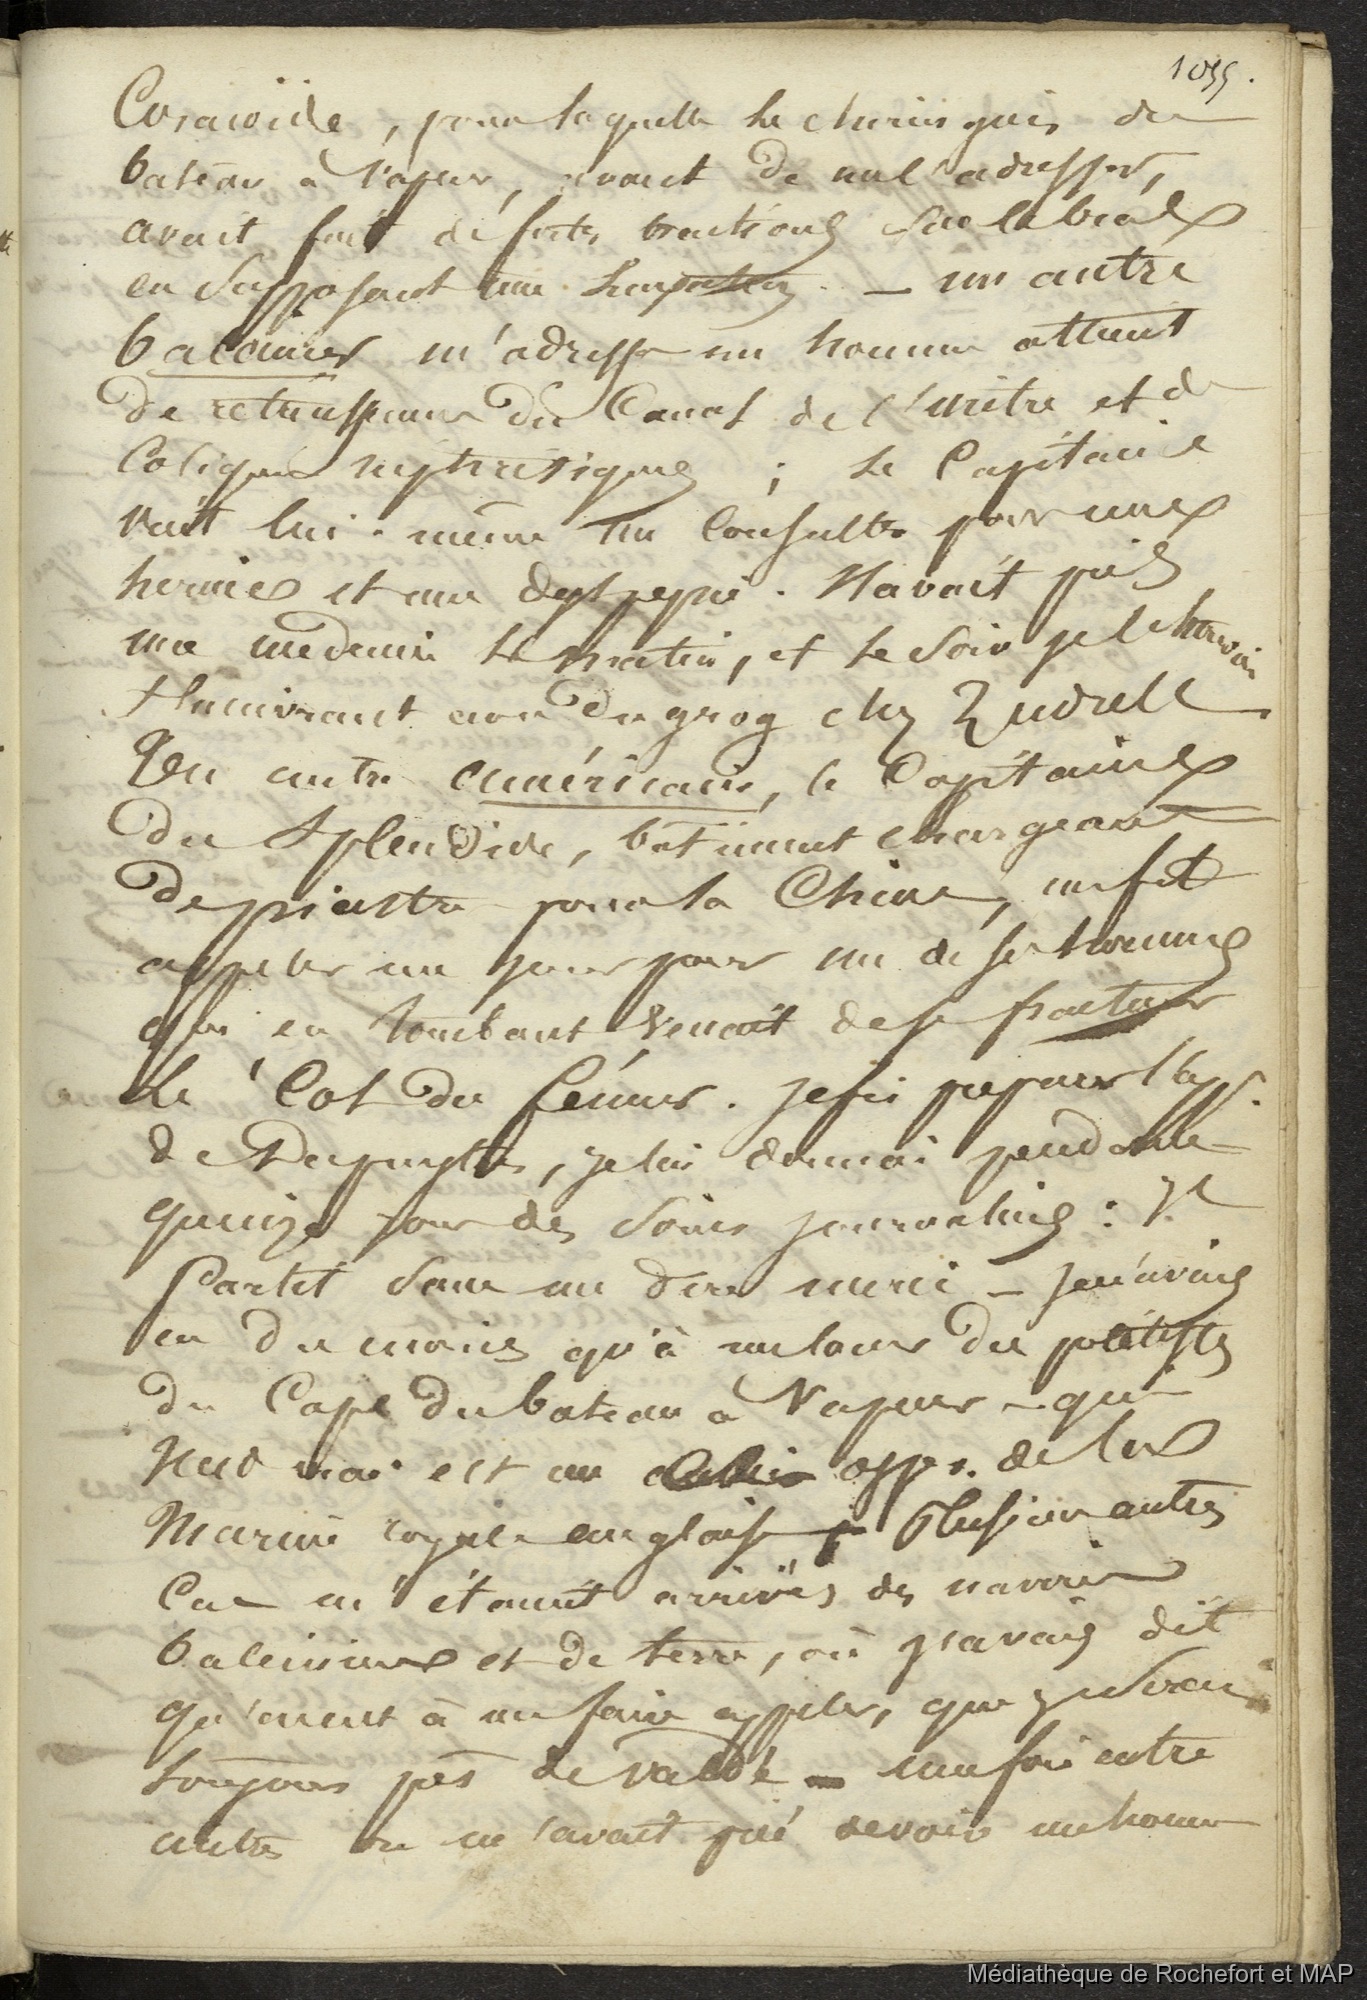 1055.
Coracoïde, pour laquelle le chirurgien du
bateau à vapeur, avant de me l'adresser,
avait fait de fortes tractions sur le bras
en supposant une luxation. — un autre
baleinier m'adresse un homme atteint
de retrecissement du Canal de l'urètre et de
Coliques nephretiques ; le Capitaine
vint lui-même me consulter pour une
hernie et une dyspepsie. Il avait pris
ma medecine le matin, et le soir je le trouvai
s'enivrant avec du grog chez
Un autre américain, le Capitaine
du Splendide, batiment chargeant
de piastres pour la Chine, me fit
appeler un jour pour un de ses hommes
qui en tombant venait de se fracturer
le Col du fémur. je fis preparer l'app.
de Dupuytren, je lui donnai pendant
quinze jours des soins journaliers : Il
Partit sans me dire merci — je n'avais
eu du moins qu'à me louer des politesses
du Cape du bateau à Vapeur — qui
il est vrai est un offer. de la
Marine royale anglaise — Plusieurs autres
Cas m'étaient arrivés des navires
baleiniers et de terre, où j'avais dit
qu'avant à me faire appeler, que
toujours pas de — une fois entre
autres on m'avait prié de voir un homme